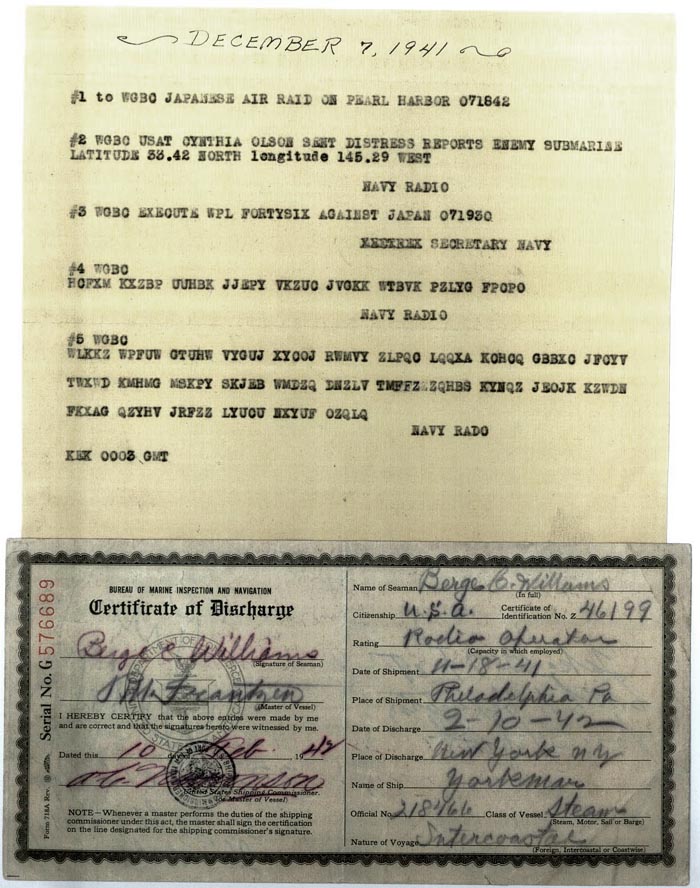 DECEMBER 7, 1941
#1 to WGBC JAPANESE AIR RAID ON PEARL HARBOR 071842
#2 WGBC USAT CYNTHIA OLSON SENT DISTRESS REPORTS ENEMY SUBMARINE
LATITUDE 33.42 NORTH longitude 145.29 WEST
NAVY RADIO
#3 WGBC EXECUTE WPL FORTYSIX AGAINST JAPAN 071930
SECRETARY NAVY
#4 WGBC
HCFXM KXZBP UUHBK JJEPY VKZUC JVGKK WTBVK PZLYG FPOPO
NAVY RADIO
#5 WGBC
WLKKZ WPFUW GTUHW VYGUJ XYCOJ RWMVY ZLPQC LQQXA KOHCQ GBBXC JFCYV
TWXWD KMHMG MSKPY SKJEB WMDZQ DNZLV TMFFZ ZQHBS KYNQZ JEOJK KZWDN
FKXAG QZYHV JRFZZ LYUCU NXYUF OZQLQ
NAVY RADO
KEK 0003 GMT
Serial No. G 576689
Form 718A Rev.
BUREAU OF MARINE INSPECTION AND NAVIGATION
Certificate of Discharge
Berge C Williams
(Signature of Seaman)
Frantzen
(Master of Vessel)
I HEREBY CERTIFY that the above entries were made by me
and are correct and that the signatures hereto were witnessed by me.
Dated this 10 day of Feb. 1942
United States Shipping Commissioner.
(or Master of Vessel)
NOTE—Whenever a master performs the duties of the shipping
commissioner under this act, the master shall sign the certification
on the line designated for the shipping commissioner's signature.
Name of Seaman Berge C. Williams
(In full)
Citizenship U.S.A. Certificate of Identification No. Z 46199
Rating Radio Operator
(Capacity in which employed)
Date of Shipment 11-18-41
Place of Shipment Philadelphia Pa
Date of Discharge 2-10-42
Place of Discharge New York NY
Name of Ship Yorkmar
Official No. 218466 Class of Vessel Steam
(Steam, Motor, Sail or Barge)
Nature of Voyage Intercoastal
(Foreign, Intercoastal or Coastwise)